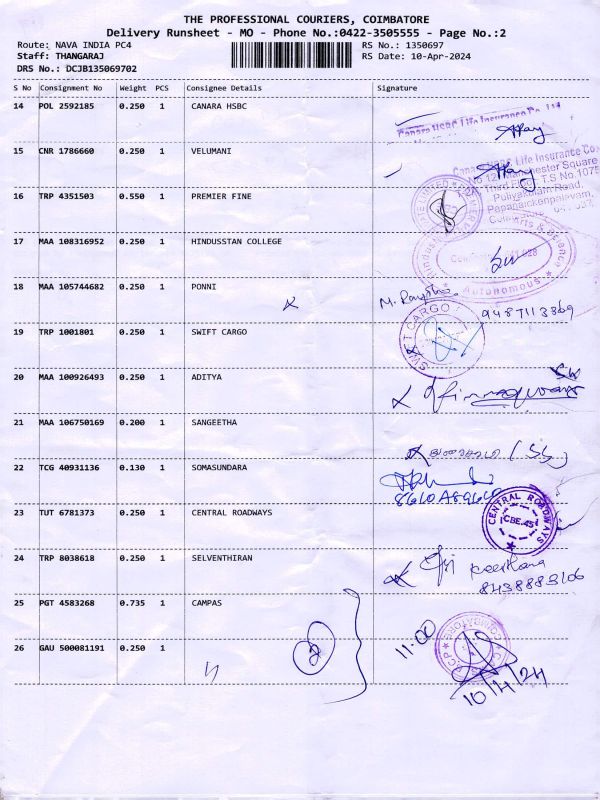 THE PROFESSIONAL COURIERS, COIMBATORE
Delivery Runsheet - MO - Phone No.:0422-3505555 - Page No.:2
Route: NAVA INDIA PC4 RS No.: 1350697
Staff: THANGARAJ RS Date: 10-Apr-2024
DRS No.: DCJB135069702
S No Consignment No Weight PCS Consignee Details Signature
14 POL 2592185 0.250 1 CANARA HSBC
Canara HSBC Life Insurance Co. Ltd
15 CNR 1786660 0.250 1 VELUMANI
Life Insurance Co.
Third Floor, T.S.No.1075
Puliyakulam Road,
Papanaickenpalayam,
16 TRP 4351503 0.550 1 PREMIER FINE
17 MAA 108316952 0.250 1 HINDUSSTAN COLLEGE
Arts & Science
Autonomous
18 MAA 105744682 0.250 1 PONNI
9487113369
19 TRP 1001801 0.250 1 SWIFT CARGO
SWIFT CARGO
20 MAA 100926493 0.250 1 ADITYA
21 MAA 106750169 0.200 1 SANGEETHA
22 TCG 40931136 0.130 1 SOMASUNDARA
23 TUT 6781373 0.250 1 CENTRAL ROADWAYS
CENTRAL ROADWAYS
CBE.45
24 TRP 8038618 0.250 1 SELVENTHIRAN
Keerthana
8438883106
25 PGT 4583268 0.735 1 CAMPAS
11.00
26 GAU 500081191 0.250 1
2
10/4/24